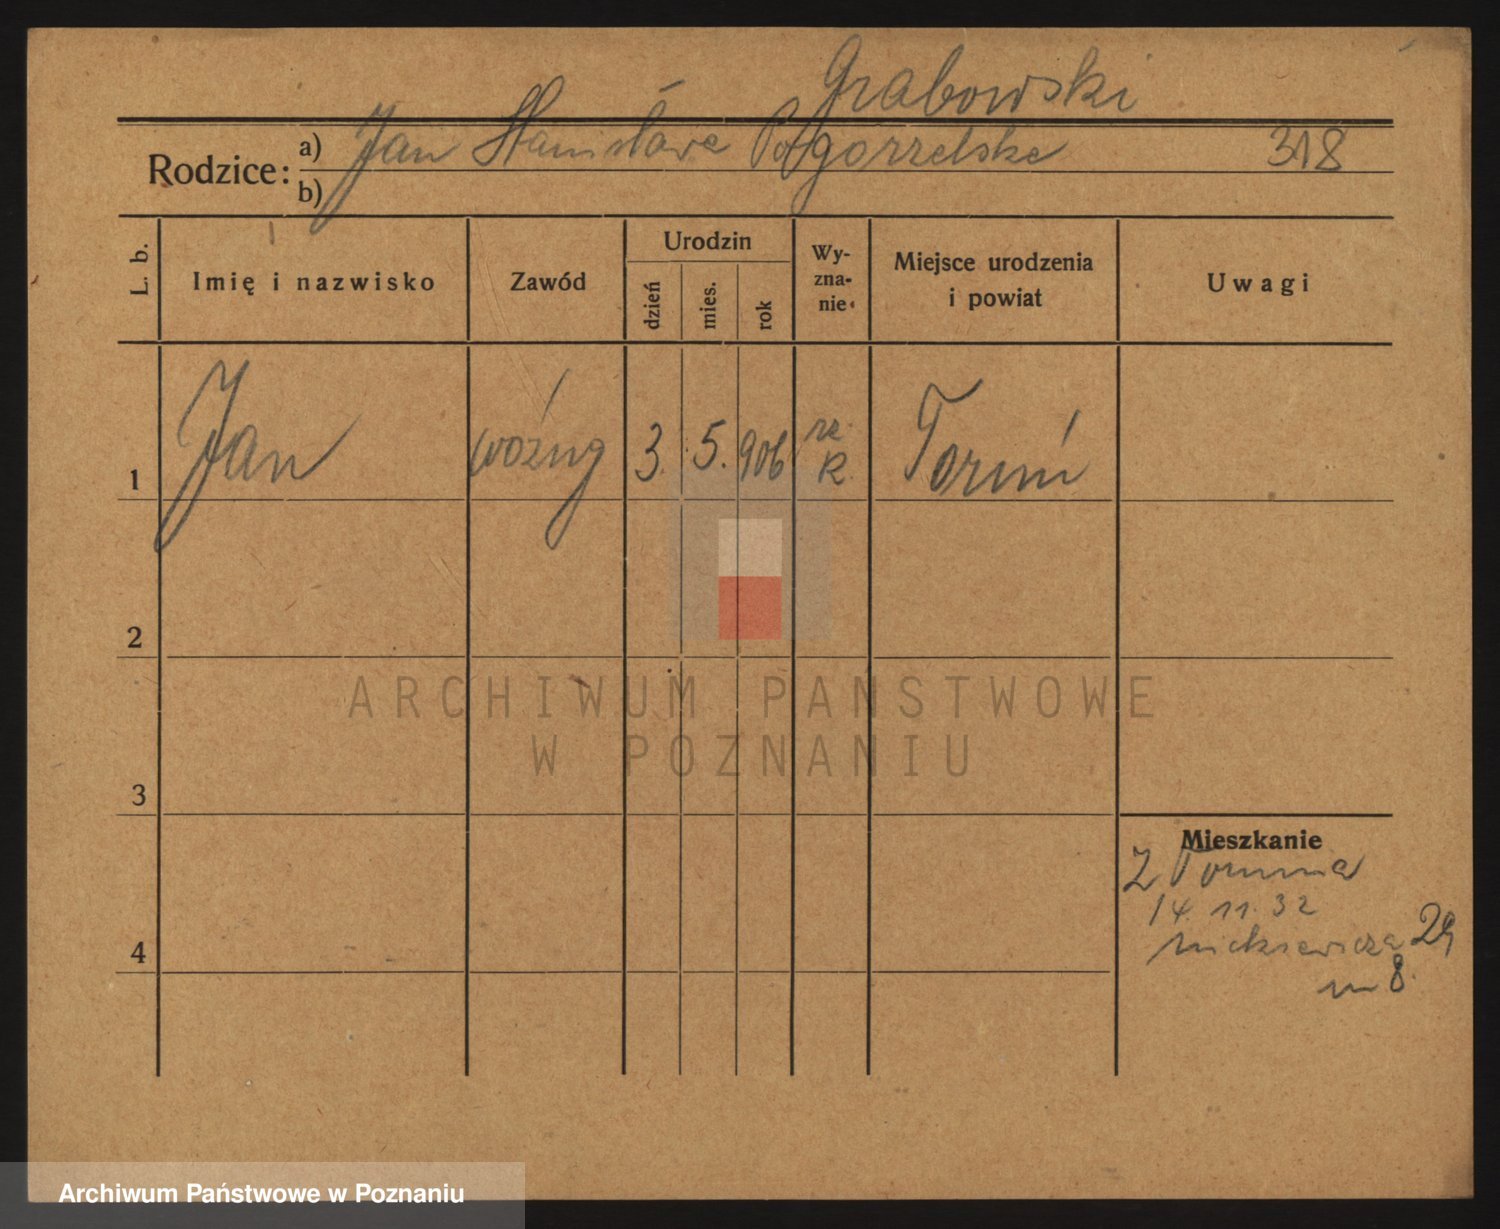 Grabowski
Rodzice: a) Jan Stanisława Pogorzelska 318
b)
L. b. Imię i nazwisko Zawód Urodzin dzień mies. rok Wy-zna-nie Miejsce urodzenia i powiat Uwagi
1 Jan woźny 3. 5. 906 rz. k. Toruń
2
ARCHIWUM PAŃSTWOWE
W POZNANIU
3
Mieszkanie
Z Torunia
14. 11. 32
Mickiewicza 29
m 8.
4
Archiwum Państwowe w Poznaniu